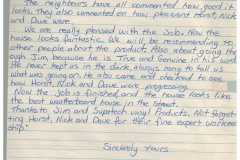 The neighbors have all commented how good it
looks. They also commented on how pleasant Horst, Nick
and Dave were.
We are really pleased with the Job. Now the
house looks fantastic. We will be recommending to
other people about the product. Also about going thr-
ough Jim, because he is True and Genuine in his word.
He never kept us in the dark, always rang to tell us
what was going on. He also came and checked to see
how Horst, Nick and Dave were progressing.
Now the Job is finished and the house looks like
the best weatherboard house in the Street.
Thanks to Jim and Supatech Vinyl Products. Not forget-
ting Horst, Nick and Dave for their fine expert workman-
ship.
Sincerely Yours